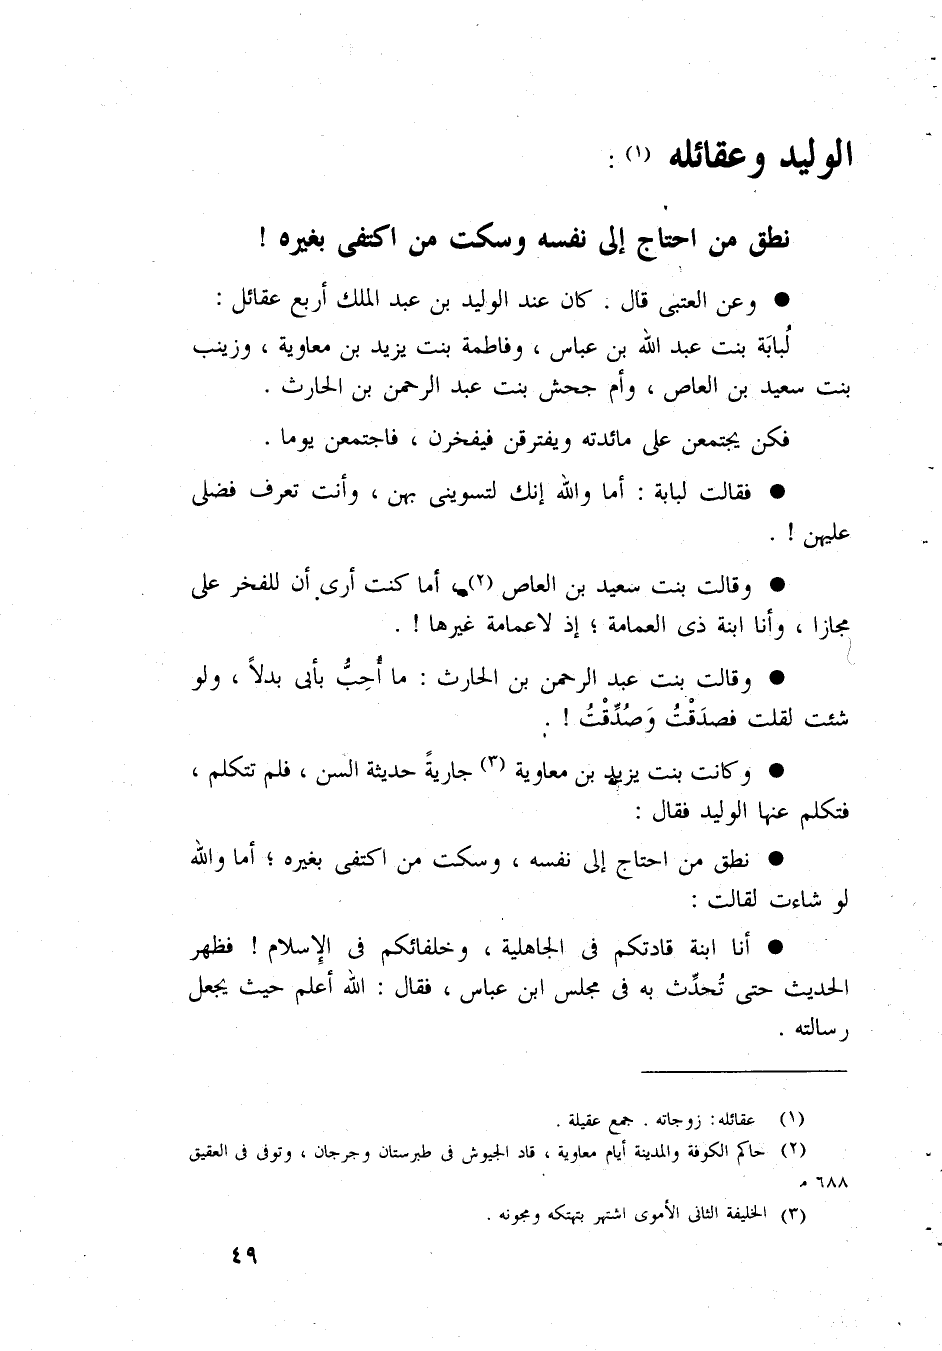 الوليد وعقائله (١) :
نطق من احتاج إلى نفسه وسكت من اكتفى بغيره !
● وعن العتبى قال . كان عند الوليد بن عبد الملك أربع عقائل :
لُبابَة بنت عبد الله بن عباس ، وفاطمة بنت يزيد بن معاوية ، وزينب
بنت سعيد بن العاص ، وأم جحش بنت عبد الرحمن بن الحارث .
فكن يجتمعن على مائدته ويفترقن فيفخرن ، فاجتمعن يوما .
● فقالت لبابة : أما والله إنك لتسوينى بهن ، وأنت تعرف فضلى
عليهن ! .
● وقالت بنت سعيد بن العاص (٢)، أما كنت أرى أن للفخر على
مجازا ، وأنا ابنة ذى العمامة ؛ إذ لاعمامة غيرها ! .
● وقالت بنت عبد الرحمن بن الحارث : ما أُحِبُّ بأبى بدلاً ، ولو
شئت لقلت فصدَقْتُ وَصُدِّقْتُ ! .
● وكانت بنت يزيد بن معاوية (٣) جاريةً حديثة السن ، فلم تتكلم ،
فتكلم عنها الوليد فقال :
● نطق من احتاج إلى نفسه ، وسكت من اكتفى بغيره ؛ أما والله
لو شاءت لقالت :
● أنا ابنة قادتكم فى الجاهلية ، وخلفائكم فى الإسلام ! فظهر
الحديث حتى تُحدِّث به فى مجلس ابن عباس ، فقال : الله أعلم حيث يجعل
رسالته .
(١) عقائله : زوجاته . جمع عقيلة .
(٢) حاكم الكوفة والمدينة أيام معاوية ، قاد الجيوش فى طبرستان وجرجان ، وتوفى فى العقيق
٦٨٨ م
(٣) الخليفة الثانى الأموى اشتهر بتهتكه ومجونه .
٤٩